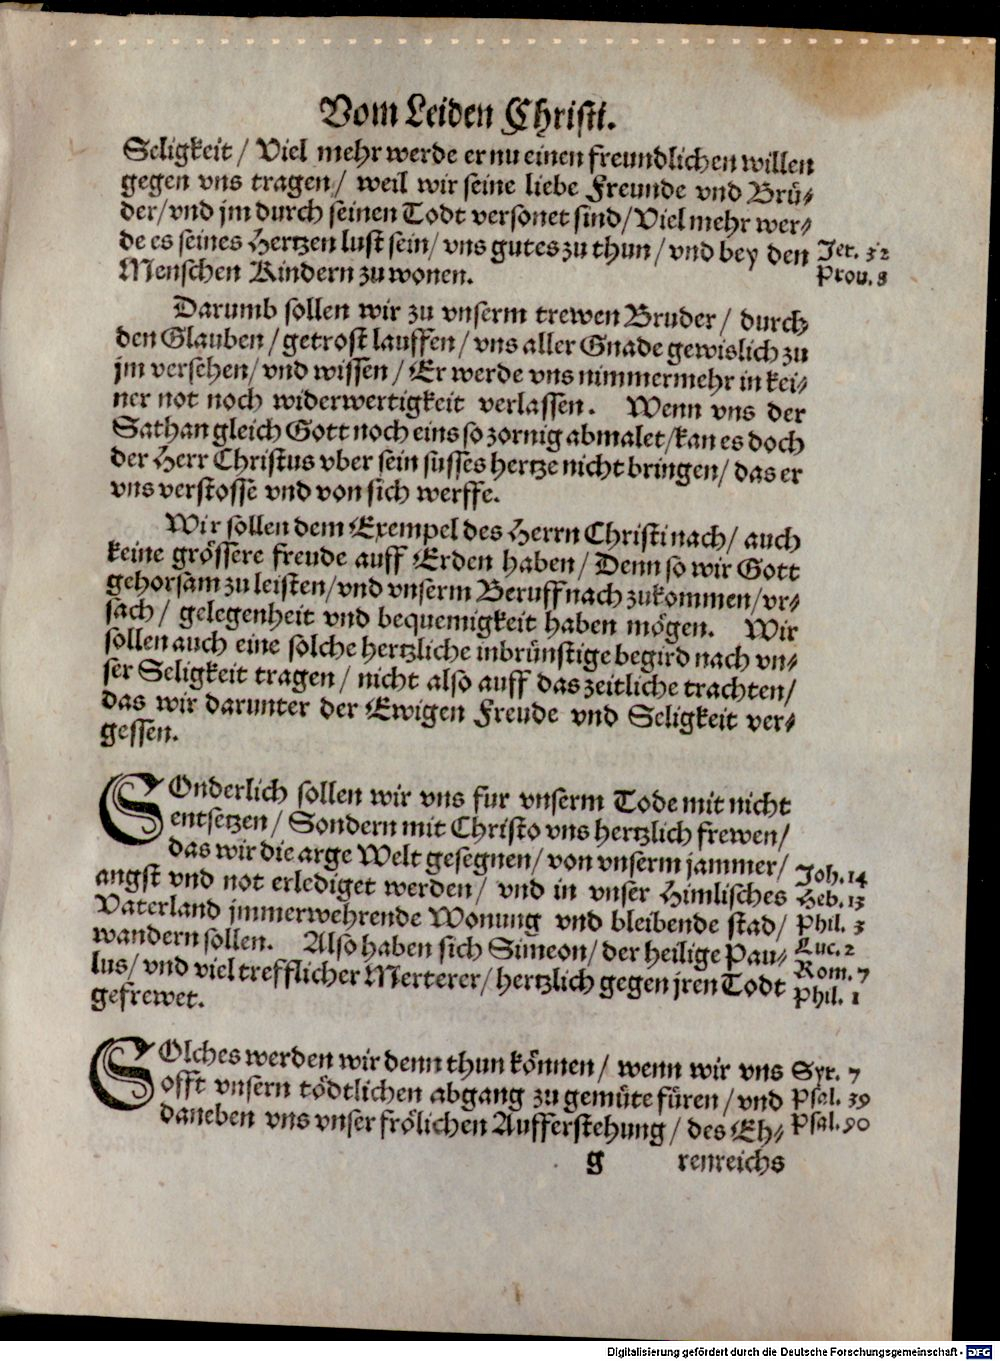 Vom Leiden Christi.
Seligkeit / Viel mehr werde er nu einen freundlichen willen
gegen vns tragen / weil wir seine liebe Freunde vnd Brü-
der / vnd jm durch seinen Todt versonet sind / Viel mehr wer-
de es seines Hertzen lust sein / vns gutes zu thun / vnd bey den
Jer. 32
Menschen Kindern zu wonen.
Prou. 8
Darumb sollen wir zu vnserm trewen Bruder / durch
den Glauben / getrost lauffen / vns aller Gnade gewislich zu
jm versehen / vnd wissen / Er werde vns nimmermehr in kei-
ner not noch widerwertigkeit verlassen. Wenn vns der
Sathan gleich Gott noch eins so zornig abmalet / kan es doch
der Herr Christus vber sein süsses hertze nicht bringen / das er
vns verstosse vnd von sich werffe.
Wir sollen dem Exempel des Herrn Christi nach / auch
keine grössere freude auff Erden haben / Denn so wir Gott
gehorsam zu leisten / vnd vnserm Beruff nach zukommen / vr-
sach / gelegenheit vnd bequemigkeit haben mögen. Wir
sollen auch eine solche hertzliche inbrünstige begird nach vn-
ser Seligkeit tragen / nicht also auff das zeitliche trachten /
das wir darunter der Ewigen Freude vnd Seligkeit ver-
gessen.
SOnderlich sollen wir vns fur vnserm Tode mit nicht
entsetzen / Sondern mit Christo vns hertzlich frewen /
das wir die arge Welt gesegnen / von vnserm jammer /
Joh. 14
angst vnd not erlediget werden / vnd in vnser Himlisches
Heb. 13
Vaterland jmmerwehrende Wonung vnd bleibende stad /
Phil. 3
wandern sollen. Also haben sich Simeon / der heilige Pau-
Luc. 2
lus / vnd viel trefflicher Merterer / hertzlich gegen jren Todt
Rom. 7
gefrewet.
Phil. 1
SOlches werden wir denn thun können / wenn wir vns
Syr. 7
offt vnsern tödtlichen abgang zu gemüte füren / vnd
Psal. 39
daneben vns vnser frölichen Aufferstehung / des Eh-
Psal. 90
g renreichs
Digitalisierung gefördert durch die Deutsche Forschungsgemeinschaft - DFG